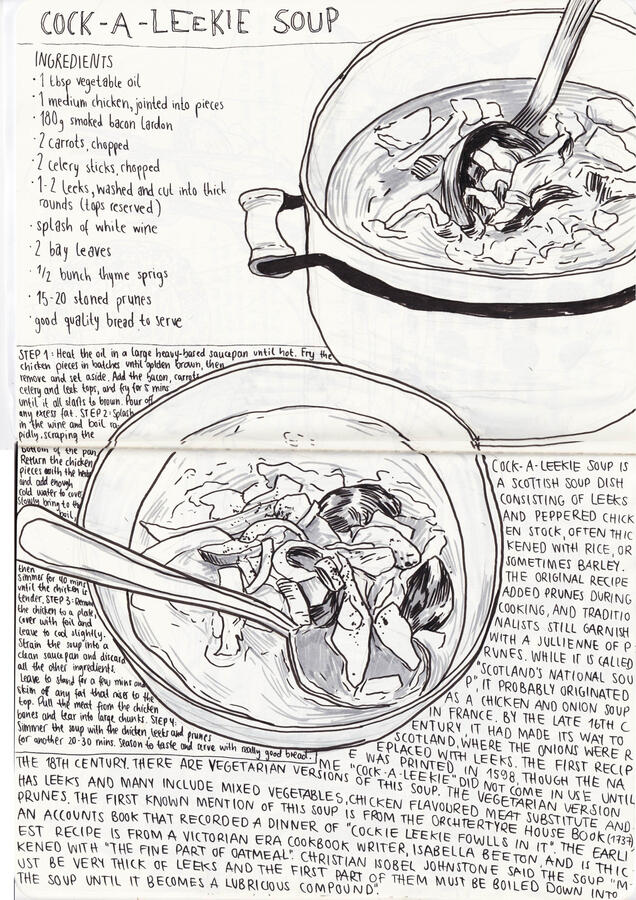 COCK-A-LEEKIE SOUP
INGREDIENTS
· 1 tbsp vegetable oil
· 1 medium chicken, jointed into pieces
· 180g smoked bacon lardon
· 2 carrots, chopped
· 2 celery sticks, chopped
· 1-2 leeks, washed and cut into thick
rounds (tops reserved)
· splash of white wine
· 2 bay leaves
· 1/2 bunch thyme sprigs
· 15-20 stoned prunes
· good quality bread to serve
STEP 1: Heat the oil in a large heavy-based saucepan until hot. Fry the
chicken pieces in batches until golden brown, then
remove and set aside. Add the bacon, carrots
celery and leek tops, and fry for 5 mins
until it all starts to brown. Pour off
any excess fat. STEP 2: Splash
in the wine and boil ra-
pidly, scraping the
bottom of the pan.
Return the chicken
pieces with the herbs
and add enough
cold water to cover
Slowly bring to the
boil,
then
Simmer for 40 mins
until the chicken is
tender. STEP 3: Remove
the chicken to a plate,
cover with foil and
leave to cool slightly.
Strain the soup into a
clean saucepan and discard
all the other ingredients.
Leave to stand for a few mins and
skim of any fat that rises to the
top. Pull the meat from the chicken
bones and tear into large chunks. STEP 4:
Simmer the soup with the chicken, leeks and prunes
for another 20-30 mins. Season to taste and serve with really good bread.
COCK-A-LEEKIE SOUP IS
A SCOTTISH SOUP DISH
CONSISTING OF LEEKS
AND PEPPERED CHICK
EN STOCK, OFTEN THIC
KENED WITH RICE, OR
SOMETIMES BARLEY.
THE ORIGINAL RECIPE
ADDED PRUNES DURING
COOKING, AND TRADITIO
NALISTS STILL GARNISH
WITH A JULIENNE OF P-
RUNES. WHILE IT IS CALLED
"SCOTLAND'S NATIONAL SOU
P", IT PROBABLY ORIGINATED
AS A CHICKEN AND ONION SOUP
IN FRANCE. BY THE LATE 16TH C
ENTURY, IT HAD MADE ITS WAY TO
SCOTLAND, WHERE THE ONIONS WERE R
EPLACED WITH LEEKS. THE FIRST RECIP
E WAS PRINTED IN 1598, THOUGH THE NA
ME "COCK-A-LEEKIE" DID NOT COME IN USE UNTIL
THE 18TH CENTURY. THERE ARE VEGETARIAN VERSIONS OF THIS SOUP. THE VEGETARIAN VERSION
HAS LEEKS AND MANY INCLUDE MIXED VEGETABLES, CHICKEN FLAVOURED MEAT SUBSTITUTE AND
PRUNES. THE FIRST KNOWN MENTION OF THIS SOUP IS FROM THE ORCHTERTYRE HOUSE BOOK (1737)
AN ACCOUNTS BOOK THAT RECORDED A DINNER OF "COCKIE LEEKIE FOWLLS IN IT". THE EARLI
EST RECIPE IS FROM A VICTORIAN ERA COOKBOOK WRITER, ISABELLA BEETON, AND IS THIC-
KENED WITH "THE FINE PART OF OATMEAL". CHRISTIAN ISOBEL JOHNSTONE SAID THE SOUP "M-
UST BE VERY THICK OF LEEKS AND THE FIRST PART OF THEM MUST BE BOILED DOWN INTO
THE SOUP UNTIL IT BECOMES A LUBRICIOUS COMPOUND".